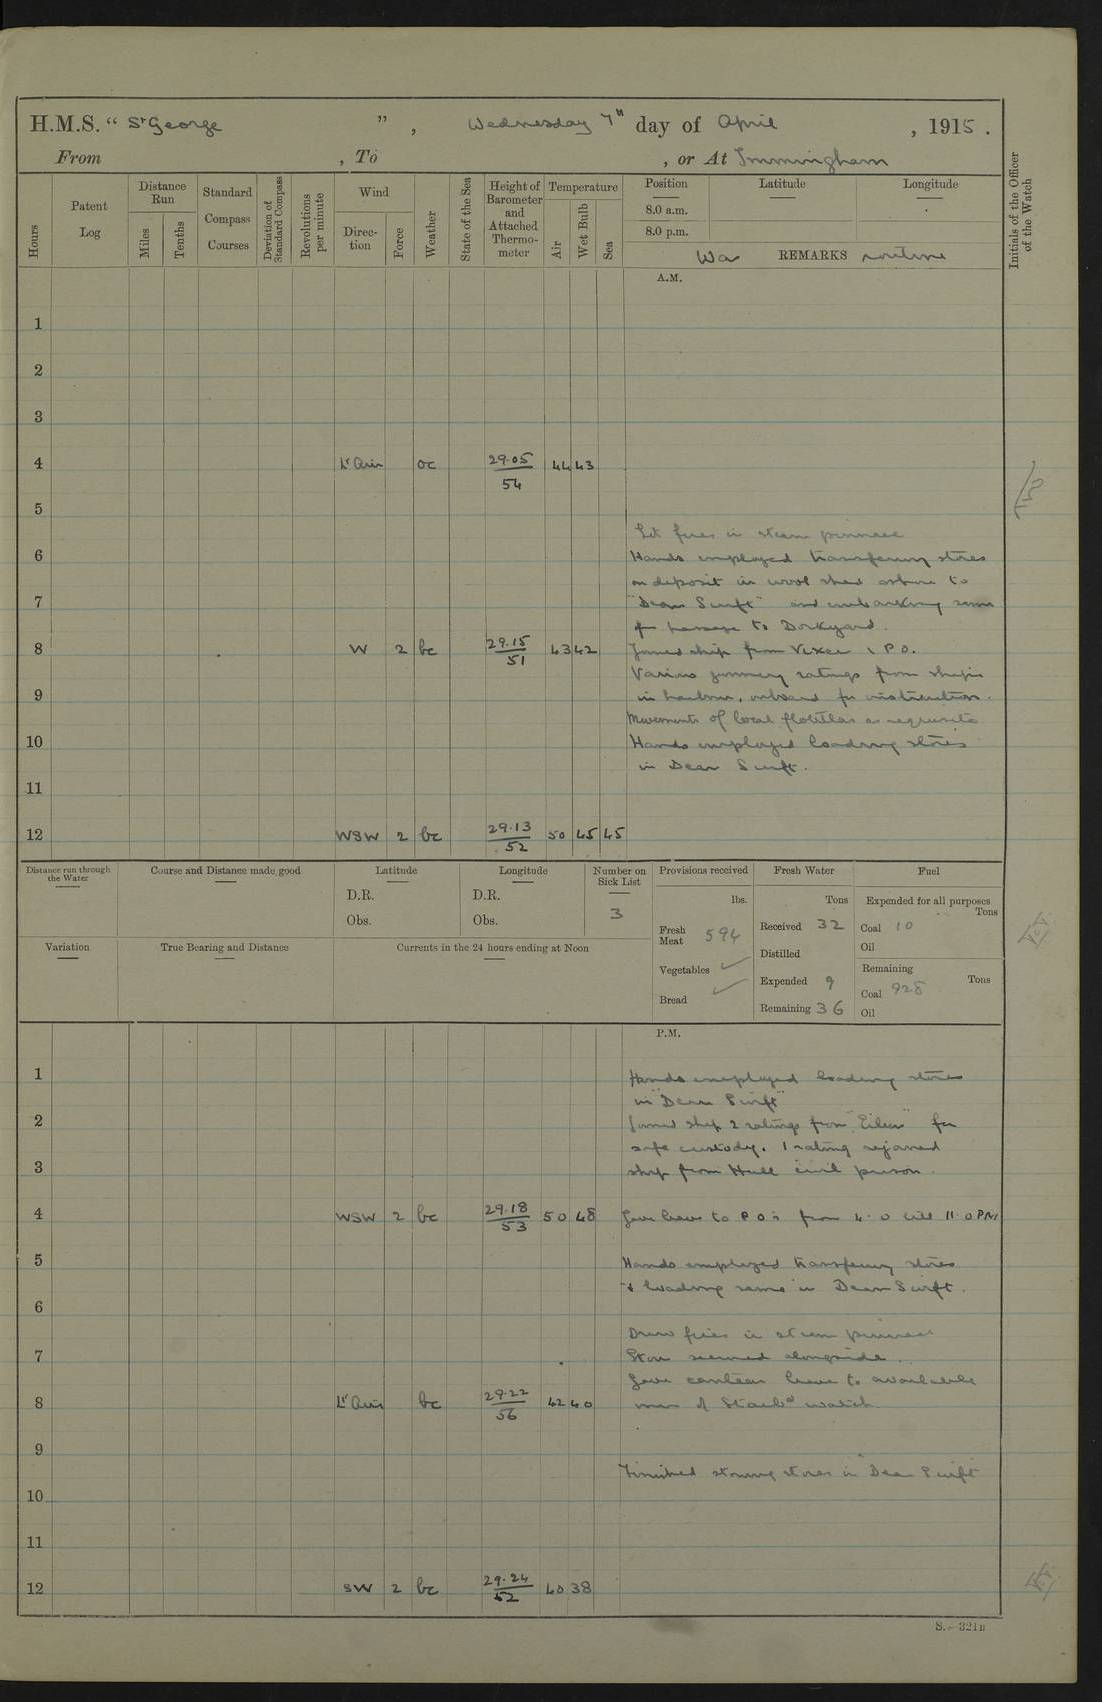 H.M.S. " St George " , Wednesday 7th day of April , 1915 .
From , To , or At Immingham
Hours
Patent Log
Distance Run
Miles
Tenths
Standard Compass Courses
Deviation of Standard Compass
Revolutions per minute
Wind
Direction
Force
Weather
State of the Sea
Height of Barometer and Attached Thermometer
Temperature
Air
Wet Bulb
Sea
Position
Latitude
Longitude
8.0 a.m.
8.0 p.m.
War REMARKS routine
Initials of the Officer of the Watch
A.M.
1
2
3
4 Lt Airs oc 29.05 44 43
54
5
Lit fires in steam pinnace
6 Hands employed transferring stores
on deposit in wool shed ashore to
7 "Dean Swift" and embarking same
for passage to Dockyard.
8 W 2 bc 29.15 43 42 Joined ship from 1 P.O.
51
Various gunnery ratings from ships
9 in harbour, onboard for instruction.
Movements of local flotillas as requisite
10 Hands employed loading stores
in Dean Swift.
11
12 WSW 2 bc 29.13 50 45 45
52
Distance run through the Water
Course and Distance made good
Latitude
D.R.
Obs.
Longitude
D.R.
Obs.
Number on Sick List
3
Provisions received
lbs.
Fresh Meat 594
Vegetables ✓
Bread ✓
Fresh Water
Tons
Received 32
Distilled
Expended 9
Remaining 36
Fuel
Expended for all purposes
Tons
Coal 10
Oil
Remaining
Tons
Coal 928
Oil
Variation
True Bearing and Distance
Currents in the 24 hours ending at Noon
P.M.
1 Hands employed loading stores
in "Dean Swift"
2 Joined ship 2 ratings from for
safe custody. 1 rating rejoined
3 ship from Hull civil prison.
4 WSW 2 bc 29.18 50 48 Gave leave to P.O's from 4.0 till 11.0 PM
53
5 Hands employed transferring stores
& loading same in Dean Swift.
6
Drew fires in steam pinnace
7 alongside.
Gave canteen leave to available
8 Lt Airs bc 29.22 42 40 men of Starbd watch
56
9
Finished stowing stores in "Dean Swift"
10
11
12 SW 2 bc 29.24 40 38
52
S.—321B